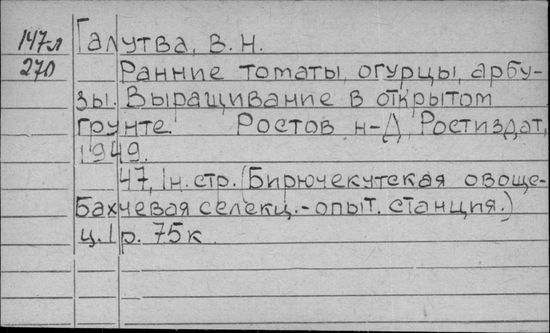 147л Галутва, В. Н.
270 Ранние томаты, огурцы, арбу-
зы. Выращивание в открытом
грунте. Ростов н-Д, Ростиздат,
1949.
47, 1н.стр. (Бирючекутская овоще-
бахчевая селекц.-опыт. станция.)
ц. 1 р. 75к